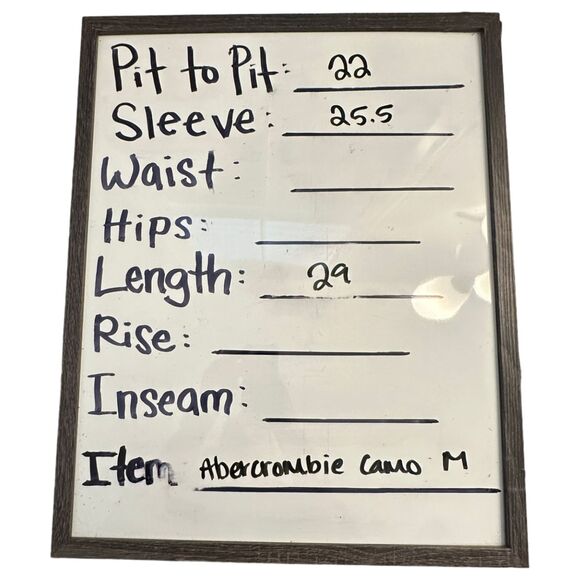 Pit to Pit: 22
Sleeve: 25.5
Waist:
Hips:
Length: 29
Rise:
Inseam:
Item Abercrombie Camo M